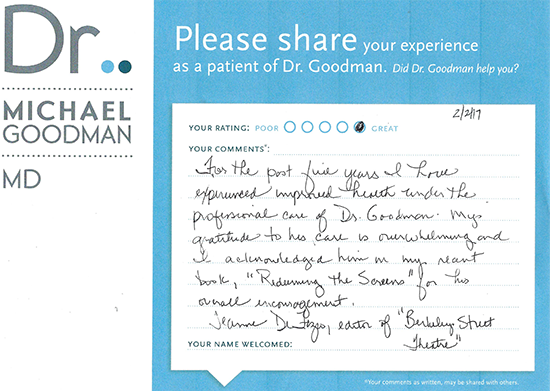 Dr..
MICHAEL
GOODMAN
MD
Please share your experience
as a patient of Dr. Goodman. Did Dr. Goodman help you?
2/2/17
YOUR RATING: POOR GREAT
YOUR COMMENTS*:
For the past five years I have
experienced improved health under the
professional care of Dr. Goodman. My
gratitude to his care is overwhelming and
I acknowledged him in my recent
book, "Redeeming the Screens" for his
overall encouragement.
Jeanne De editor of "Berkeley Street
Theatre"
YOUR NAME WELCOMED:
*Your comments as written, may be shared with others.